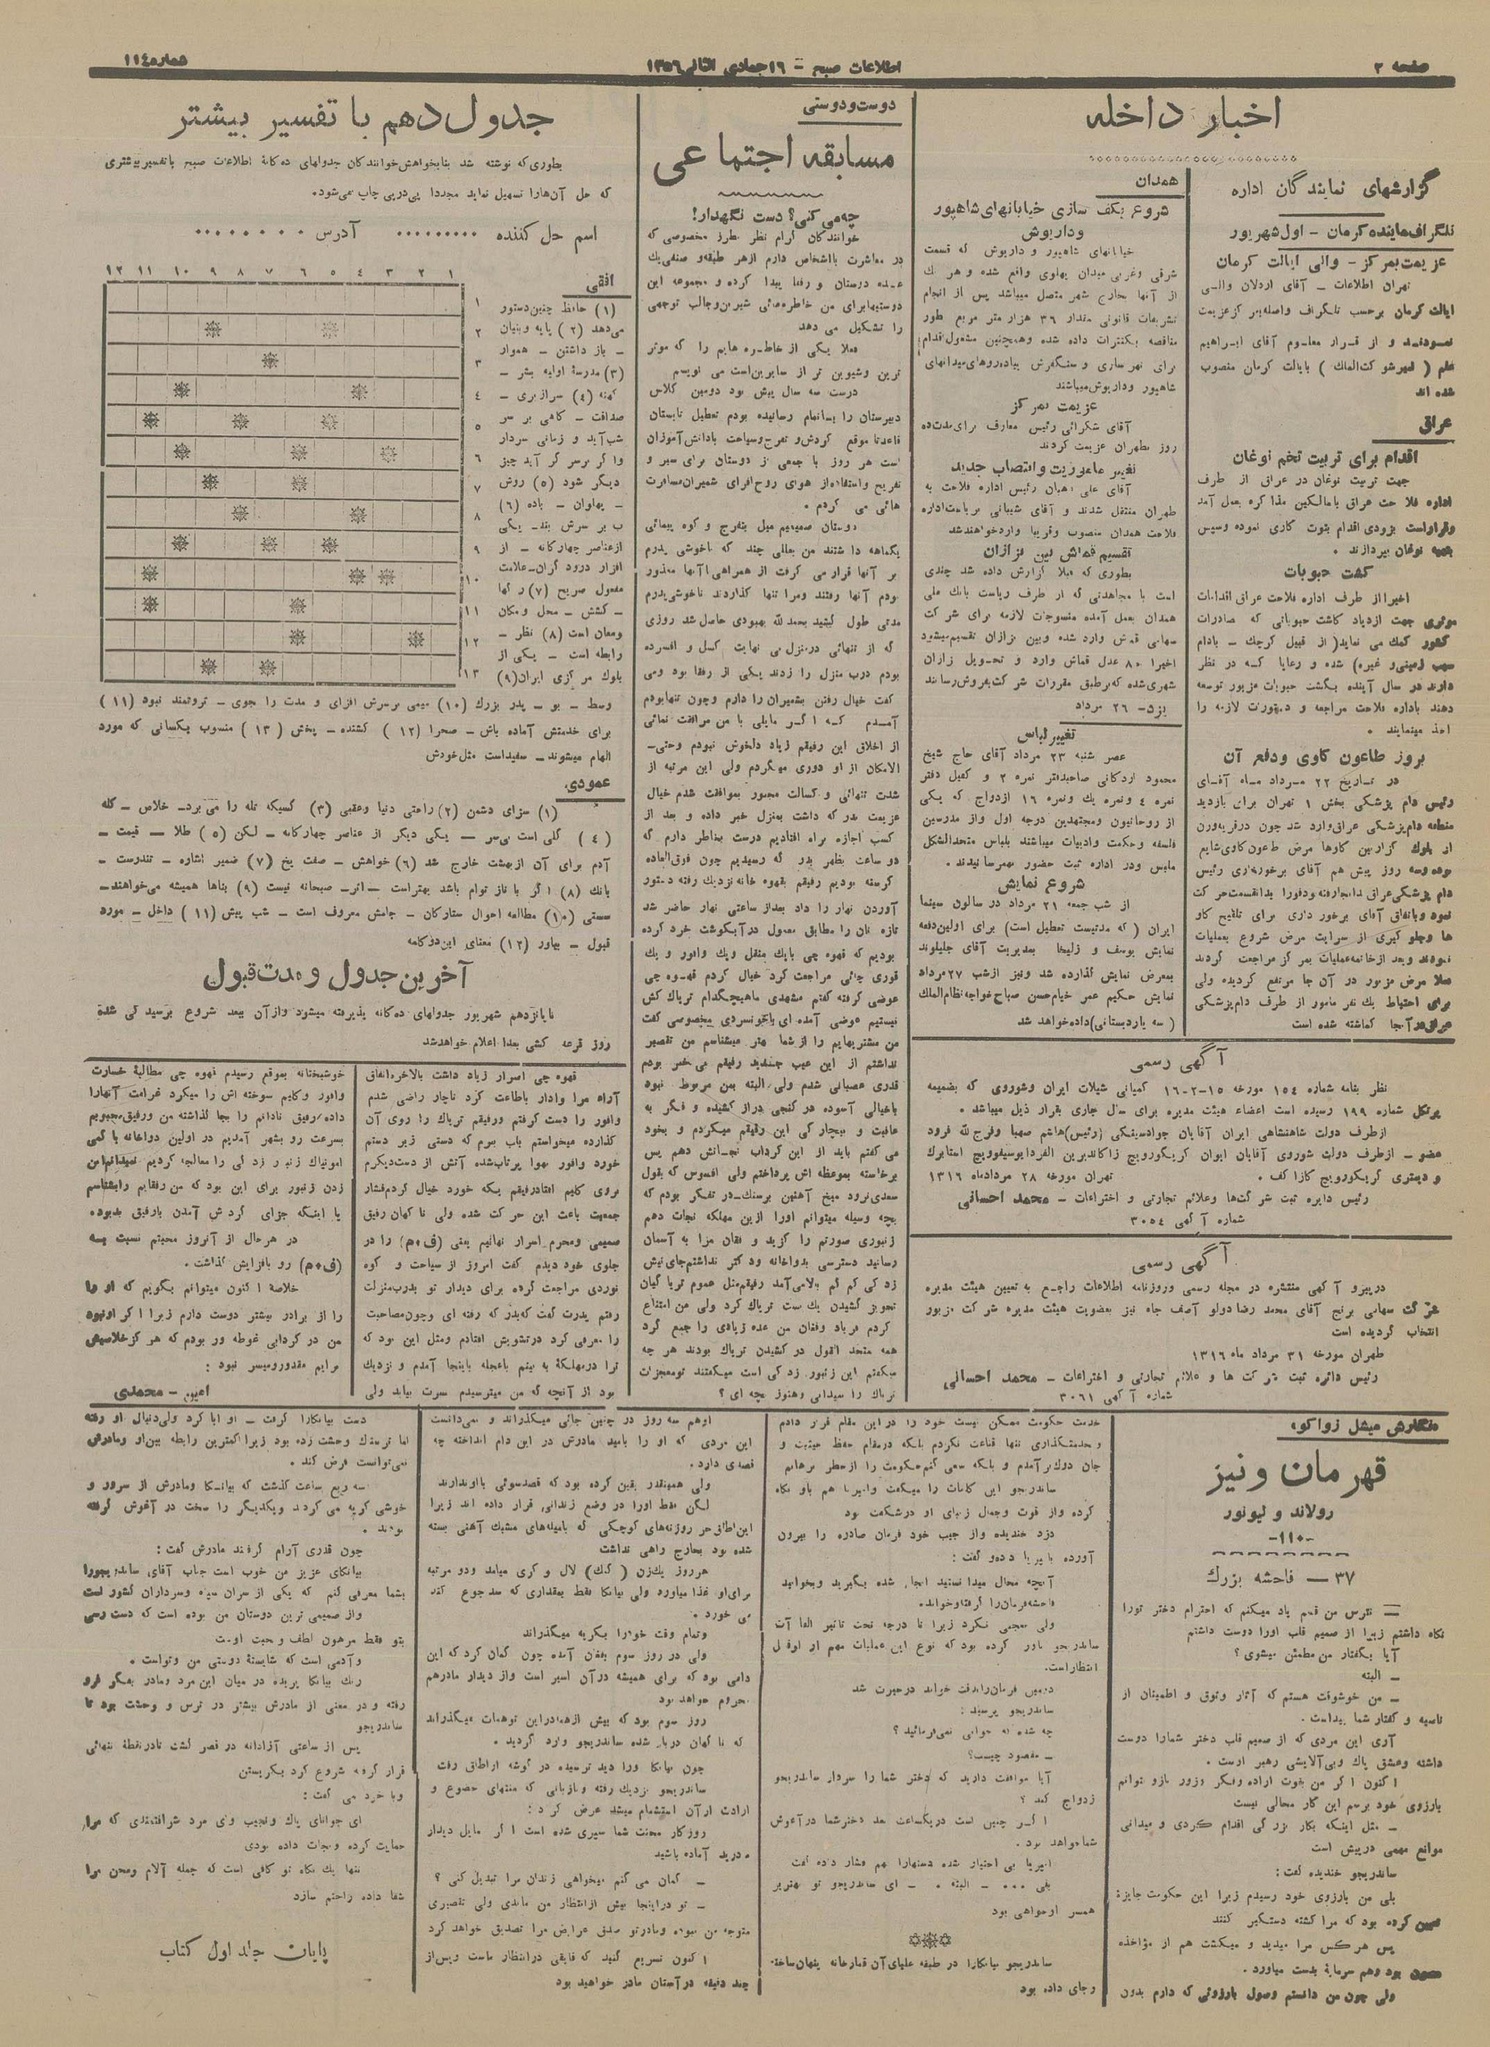 صفحه ۲
اطلاعات صبح - ۱۶ جمادی الثانی ۱۳۵۶
شماره ۱۱۴
اخبار داخله
گزارشهای نمایندگان اداره
تلگراف نماینده کرمان - اول شهریور
عزیمت بمرکز - والی ایالت کرمان
تهران اطلاعات - آقای اردلان والی
ایالت کرمان برحسب تلگراف واصله بمرکز عزیمت
نمودند و از قرار معلوم آقای ابراهیم
علم (امیر شوکت الملک) بایالت کرمان منصوب
شده اند
عراق
اقدام برای تربیت تخم نوغان
جهت تربیت نوغان در عراق از طرف
اداره فلاحت عراق با مالکین مذاکره بعمل آمد
وقرار است بزودی اقدام بتوت کاری نموده وسپس
بتهیه نوغان بپردازند .
کشت حبوبات
اخیرا از طرف اداره فلاحت عراق اقدامات
موثری جهت ازدیاد کاشت حبوباتی که صادرات
کشور کمک می نماید (از قبیل کرچک - بادام
سیب زمینی وغیره) شده و رعایا که در نظر
دارند در سال آینده بکشت حبوبات مزبور توسعه
دهند باداره فلاحت مراجعه و دستورات لازمه را
اخذ مینمایند .
بروز طاعون گاوی و دفع آن
در تاریخ ۲۲ مرداد ماه آقای
رئیس دام پزشکی بخش ۱ تهران برای بازدید
منطقه دام پزشکی عراق وارد شد چون در قریه ورن
از بلوک گزاز بین گاوها مرض طاعون گاوی شایع
بوده وسه روز پیش هم آقای برخورداری رئیس
دام پزشکی عراق بدانجا رفته ودفورا بدانقسمت حرکت
نمود وباتفاق آقای برخورداری برای تلقیح گاو
ها وجلوگیری از سرایت مرض شروع بعملیات
نمودند وبعد از خاتمه عملیات بمرکز مراجعت کردند
فعلا مرض مزبور در آن جا مرتفع گردیده ولی
برای احتیاط یک نفر مامور از طرف دام پزشکی
عراق در آنجا گماشته شده است
همدان
شروع بکف سازی خیابانهای شاهپور
و داریوش
خیابانهای شاهپور و داریوش که قسمت
شرقی وغربی میدان پهلوی واقع شده و هر یک
از آنها بخارج شهر متصل میباشد پس از انجام
تشریفات قانونی مقدار ۳۶ هزار متر مربع طور
مناقصه بکنترات داده شده وهمچنین مشغول اقدام
برای نهرسازی و سنگفرش پیاده روهای میدانهای
شاهپور وداریوش میباشند
عزیمت بمرکز
آقای شکرائی رئیس معارف برای مدت ده
روز بطهران عزیمت کردند
تغییر ماموریت و انتصاب جدید
آقای علی دهبان رئیس اداره فلاحت به
طهران منتقل شدند و آقای شیبانی بریاست اداره
فلاحت همدان منصوب وقریبا وارد خواهند شد
تقسیم قماش بین بزازان
بطوری که قبلا گزارش داده شد چندی
است با مجاهدتی که از طرف ریاست بانک ملی
همدان بعمل آمده منسوجات لازمه برای شرکت
سهامی قماش وارد شده وبین بزازان تقسیم میشود
اخیرا ۸۰ عدل قماش وارد و تحویل بزازان
شهری شده که بر طبق مقررات شرکت بفروش رسانند
یزد - ۲۶ مرداد
تغییر لباس
عصر شنبه ۲۳ مرداد آقای حاج شیخ
محمود اردکانی صاحبدفتر نمره ۲ و کفیل دفتر
نمره ٤ ونمره یک ونمره ۱۶ ازدواج که یکی
از روحانیون ومجتهدین درجه اول واز مدرسین
فلسفه وحکمت وادبیات میباشند بلباس متحدالشکل
ملبس ودر اداره ثبت حضور بهمرسانیدند .
شروع نمایش
از شب جمعه ۲۱ مرداد در سالون سینما
ایران (که مدتیست تعطیل است) برای اولین دفعه
نمایش یوسف و زلیخا بمدیریت آقای جلیلوند
بمعرض نمایش گذارده شد ونیز از شب ۲۷ مرداد
نمایش حکیم عمر خیام حسن صباح خواجه نظام الملک
(سه یار دبستانی) داده خواهد شد
آگهی رسمی
نظر بنامه شماره ۱۵۴ مورخه ۱۵-۲-۱۶ کمپانی شیلات ایران وشوروی که بضمیمه
پرتکل شماره ۱۹۹ رسیده است اعضاء هیئت مدیره برای سال جاری بقرار ذیل میباشد .
از طرف دولت شاهنشاهی ایران آقایان جواد سینکی (رئیس) هاشم صهبا وفرج الله فرود
عضو - از طرف دولت شوروی آقایان ایوان گریگورویچ زاکاندرین الفرد ایوسیفوویچ استابرک
و دیمتری گریگورویچ کازا کف . تهران مورخه ۲۸ مرداد ماه ۱۳۱۶
رئیس دایره ثبت شرکت ها وعلائم تجارتی و اختراعات - محمد احسانی
شماره آگهی ۳۰۵۴
آگهی رسمی
در پیرو آگهی منتشره در مجله رسمی وروزنامه اطلاعات راجع به تعیین هیئت مدیره
شرکت سهامی برنج آقای محمد رضا دولو آصف جاه نیز بعضویت هیئت مدیره شرکت مزبور
انتخاب گردیده است
طهران مورخه ۳۱ مرداد ماه ۱۳۱۶
رئیس دائره ثبت شرکت ها و علائم تجارتی و اختراعات - محمد احسانی
شماره آگهی ۳۰۶۱
دوست و دوستی
مسابقه اجتماعی
چه می کنی؟ دست نگهدار!
خوانندگان گرام نظر بطرز مخصوصی که
در معاشرت با اشخاص دارم از هر طبقه و صنفی یک
عده دوستان و رفقا پیدا کرده و مجموعه این
دوستیها برای من خاطره های شیرین وجالب توجهی
را تشکیل می دهد
فعلا یکی از خاطره هایم را که موثر
ترین وشیرین تر از سایرین است می نویسم
درست سه سال پیش بود دومین کلاس
دبیرستان را بساتمام رسانیده بودم تعطیل تابستان
قاعدتا موقع گردش و تفرج وسیاحت بادانش آموزان
است هر روز با جمعی از دوستان برای سیر و
تفریح واستفاده از هوای روح افزای شمیران مسافرت
هائی می کردم .
دوستان صمیمیم میل بتفرج و کوه پیمائی
یکماهه داشتند من بعللی چند که ناخوشی پدرم
بر آنها قرار می گرفت از همراهی آنها معذور
بودم آنها رفتند ومرا تنها گذاردند ناخوشی پدرم
مدتی طول کشید بحمدلله بهبودی حاصل شد روزی
که از تنهائی در منزل بی نهایت کسل و افسرده
بودم درب منزل را زدند یکی از رفقا بود ومی
گفت خیال رفتن بشمیران را دارم وچون تنها بودم
آمدم که اگر مایلی با من مرافقت نمائی
از اخلاق این رفیقم زیاد دلخوش نبودم وحتی-
الامکان از او دوری میکردم ولی این مرتبه از
شدت تنهائی و کسالت مجبور بموافقت شدم خیال
عزیمت بدر که داشت بمنزل خبر داده و بعد از
کسب اجازه براه افتادیم درست بخاطر دارم که
دو ساعت بظهر بدر که رسیدیم چون فوق العاده
گرسنه بودیم رفیقم بقهوه خانه نزدیک رفته دستور
آوردن نهار را داد بعد از ساعتی نهار حاضر شد
تازه نان را مطابق معمول در آبگوشت خرد کرده
بودیم که قهوه چی با یک منقل ویک وافور و یک
قوری چائی مراجعت کرد خیال کردم قهوه چی
عوضی گرفته گفتم مشهدی ما هیچکدام تریاک کش
نیستیم عوضی آمده ای با خونسردی مخصوصی گفت
من مشتریهایم را از شما بهتر میشناسم من تقصیر
نداشتم از این عیب جدید رفیقم بی خبر بودم
قدری عصبانی شدم ولی البته بمن مربوط نبود
با خیالی آسوده در کنجی دراز کشیده و فکر به
عاقبت و بیچارگی این رفیقم میکردم و بخود
می گفتم باید از این گرداب نجاتش دهم پس
برخاسته بموعظه اش پرداختم ولی افسوس که بقول
سعدی نرود میخ آهنین برسنگ - در تفکر بودم که
بچه وسیله میتوانم اورا ازین مهلکه نجات دهم
زنبوری صورتم را گزید و فغان مرا به آسمان
رسانید دسترسی بدواخانه ودکتر نداشتم جای نیش
زدگی کم کم بالا می آمد رفیقم مثل عموم تریاکیان
تجویز کشیدن یک بست تریاک کرد ولی من امتناع
کردم فریاد وفغان من عده زیادی را جمع کرد
همه متحد القول در کشیدن تریاک بودند هر چه
میگفتم این زنبور زدگی است میگفتند تو معجزات
تریاک را نمیدانی وهنوز بچه ای ؟
جدول دهم با تفسیر بیشتر
بطوری که نوشته شد بنابخواهش خوانندگان جدولهای ده گانه اطلاعات صبح با تفسیر بیشتری
که حل آن هارا تسهیل نماید مجددا پی در پی چاپ می شود .
اسم حل کننده ......... آدرس ........
۱ ۲ ۳ ۴ ۵ ۶ ۷ ۸ ۹ ۱۰ ۱۱ ۱۲
۱
۲
۳
۴
۵
۶
۷
۸
۹
۱۰
۱۱
۱۲
۱۳
افقی
(۱) حافظ چنین دستور
می دهد (۲) پایه وبنیان
- باز داشتن - هموار
(۳) مدرسهٔ اولیه بشر -
کهنه (٤) سرازیری -
صداقت - گاهی بر سر
شب آید و زمانی سردار
واگر بر سر گر آید چیز
دیگر شود (۵) روش
- پهلوان - باده (۶)
ب بر سرش بند - یکی
از عناصر چهارگانه - از
افزار درودگران - علامت
مفعول صریح (۷) رگها
- کشش - محل ومکان
ومعان است (۸) نظر -
رابطه است - یکی از
بلوک مرکزی ایران (۹)
وسط - بو - پدر بزرگ (۱۰) میمی برسرش افزای و مدت را جوی - ثروتمند نبود (۱۱)
برای خدمتش آماده باش - صحرا (۱۲) کشنده - پخش (۱۳) منسوب بکسانی که مورد
الهام میشوند - سفید است مثل خودش
عمودی
(۱) سزای دشمن (۲) راحتی دنیا وعقبی (۳) کسیکه گله را می برد - خلاص - گله
(٤) گلی است بی سر - یکی دیگر از عناصر چهارگانه - لکن (۵) طلا - قیمت -
آدم برای آن از بهشت خارج شد (۶) خواهش - صفت یخ (۷) ضمیر اشاره - تندرست -
بانگ (۸) اگر با ناز توام باشد بهتر است - اثر - صبحانه نیست (۹) بناها همیشه می خواهند -
سستی (۱۰) مطالعه احوال ستارگان - جامش معروف است - شب پیش (۱۱) داخل - مورد
قبول - بیاور (۱۲) معنای این دو کلمه
آخرین جدول و مدت قبول
تا پانزدهم شهریور جدولهای ده گانه پذیرفته میشود و از آن ببعد شروع برسیدگی شده
روز قرعه کشی بعدا اعلام خواهد شد
قهوه چی اسرار زیاد داشت بالاخره اتفاق
آراء مرا وادار باطاعت کرد ناچار راضی شدم
وافور را دست گرفتم ورفیقم تریاک را روی آن
گذارده میخواستم بلب ببرم که دستی زیر دستم
خورد وافور بهوا پرتاب شده آتش از دست دیگرم
بروی گلیم افتاد رفیقم یکه خورد خیال کردم فشار
جمعیت باعث این حرکت شده ولی ناگهان رفیق
صمیمی ومحرم اسرار نهانیم یعنی (ف.م) را در
جلوی خود دیدم گفت امروز از سیاحت و کوه
نوردی مراجعت کرده برای دیدار تو بدرب منزلت
رفتم پدرت گفت که بدر که رفته ای وچون مصاحبت
را معرفی کرد در تشویش افتادم ومثل این بود که
ترا در مهلکهٔ به بینم باعجله باینجا آمدم و نزدیک
بود از آنچه که من میترسیدم بسرت بیاید ولی
خوشبختانه بموقع رسیدم قهوه چی مطالبهٔ خسارت
وافور وگلیم سوخته اش را میکرد غرامت آنهارا
داده رفیق نادانم را بجا گذاشته من ورفیق محبوبم
بسرعت رو بشهر آمدیم در اولین دواخانه با کمی
امونیاک زنبور زدگی را معالجه کردیم نمیدانم این
زدن زنبور برای این بود که من رفقایم را بشناسم
یا اینکه جزای گردش آمدن بارفیق بد بود .
در هر حال از آنروز محبتم نسبت به
(ف.م) رو بافزایش گذاشت .
خلاصه اکنون میتوانم بگویم که او را
را از برادر بیشتر دوست دارم زیرا اگر او نبود
من در گردابی غوطه ور بودم که هرگز خلاصیش
برایم مقدور ومیسر نبود :
امین - محمدی
نگارش میشل زواگو
قهرمان ونیز
رولاند و لیونور
-۱۱۰-
۳۷ - فاحشه بزرگ
- نترس من قسم یاد میکنم که احترام دختر تورا
نگاه داشتم زیرا از صمیم قلب اورا دوست داشتم
آیا بگفتار من مطمئن میشوی ؟
- البته
- من خوشوقت هستم که آثار وثوق و اطمینان از
ناصیه و گفتار شما پیداست .
آری این مردی که از صمیم قلب دختر شمارا دوست
داشته وعشق پاک وبی آلایشی رهبر اوست .
اکنون اگر من بقوت اراده وفکر وزور بازو بتوانم
بارزوی خود برسم این کار محالی نیست
- مثل اینکه بکار بزرگی اقدام کردی و میدانی
موانع مهمی در پیش است
ساندریجو خندیده گفت :
بلی من بارزوی خود رسیدم زیرا این حکومت جایزهٔ
معین کرده بود که مرا کشته دستگیر کنند
پس هر کس مرا میدید و میکشت هم از مؤاخذه
مصون بود وهم سرمایهٔ بدست میاورد .
ولی چون من دانستم وصول بارزوئی که دارم بدون
خدمت حکومت ممکن نیست خود را در این مقام قرار دادم
وبخدمتگذاری تنها قناعت نکردم بلکه در مقام حفظ حیثیت و
جان دوک برآمدم و بلکه سعی کنم حکومت را از خطر برهانم
ساندریجو این کلمات را میگفت وامپریا هم باو نگاه
کرده واز قوت وجمال زیبای او در شگفت بود
دزد خندیده واز جیب خود فرمان صادره را بیرون
آورده بامپریا داده و گفت :
آنچه محال میدانستید انجام شده بگیرید وبخوانید
فاحشه فرمان را گرفته وخواند .
ولی تعجبی نکرد زیرا تا درجه تحت تاثیر القاآت
ساندریجو باور کرده بود که نوع این عملیات مهم از او قابل
انتظار است .
ساندریجو پرسید :
چه شده که جوابی نمی فرمائید ؟
- مقصود چیست ؟
آیا موافقت دارید که دختر شما را سردار ساندریجو
ازدواج کند ؟
اگر چنین است در یکساعت بعد دختر شما در آغوش
شما خواهد بود .
امپریا بی اختیار شده دستهارا بهم فشار داده گفت
بلی ... - البته . - ای ساندریجو تو بهترین
همسر او خواهی بود
ساندریجو بیانکارا در طبقه علیای آن قمارخانه پنهان ساخته
وجای داده بود
او هم سه روز در چنین جائی میگذراند و نمی دانست
این مردی که او را بامید مادرش در این دام انداخته چه
قصدی دارد .
ولی همینقدر یقین کرده بود که قصد سوئی باو ندارند
لکن فقط اورا در وضع زندانی قرار داده اند زیرا
این اطاق جز روزنه های کوچکی که بامیله های مشبک آهنی بسته
شده بود بخارج راهی نداشت
هر روز یک زن (گنگ) لال و کری میامد ودو مرتبه
برای او غذا میاورد ولی بیانکا فقط بمقداری که سد جوع کند
می خورد .
وتمام وقت خودرا بگریه میگذراند
ولی در روز سوم بفغان آمده چون گمان کرد که این
دامی بود که برای همیشه در آن اسیر است واز دیدار مادر هم
محروم خواهد بود
روز سوم بود که بیش از همه در این توهمات میگذراند
که ناگهان درباز شده ساندریجو وارد گردید .
چون بیانکا ورا دید ترسیده در گوشه از اطاق رفت
ساندریجو نزدیک رفته وبازبانی که منتهای خضوع و
ارادت از آن استشمام میشد عرض کرد :
روزگار محنت شما سپری شده است اگر مایل دیدار
مادرید آماده باشید
- گمان می کنم میخواهی زندان مرا تبدیل کنی ؟
- تو در اینجا بیش از انتظار من ماندی ولی تقصیری
متوجه من نبوده ومادر تو صدق عرایض مرا تصدیق خواهد کرد
اکنون تسریع کنید که قایقی در انتظار ماست وپس از
چند دقیقه در آستان مادر خواهید بود
دست بیانکارا گرفت - او ابا کرد ولی دنبال او رفته
اما ترسناک و وحشت زده بود زیرا کمترین رابطه بین او ومادرش
نمی توانست فرض کند .
سه ربع ساعت گذشت که بیانکا ومادرش از سرور و
خوشی گریه می کردند ویکدیگر را سخت در آغوش گرفته
بودند .
چون قدری آرام گرفتند مادرش گفت :
بیانکای عزیز من خوب است جناب آقای ساندریجورا
بشما معرفی کنم که یکی از سران سپاه وسرداران کشور است
واز صمیمی ترین دوستان من بوده است که دست رسی
بتو فقط مرهون لطف و محبت اوست
وآدمی است که شایستهٔ دوستی من وتواست .
رنگ بیانکا پریده در میان این مرد ومادر بفکر فرو
رفته و در معنی از مادرش بیشتر در ترس و وحشت بود تا
ساندریجو
پس از ساعتی آزادانه در قصر گشت تا در نقطهٔ تنهائی
قرار گرفته شروع کرد بگریستن
وبا خرد می گفت :
ای جوانای پاک ونجیب وای مرد شرافتمندی که مرا
حمایت کرده ونجات داده بودی
تنها یک نگاه تو کافی است که جمله آلام ومحن مرا
شفا داده راحتم سازد
پایان جلد اول کتاب